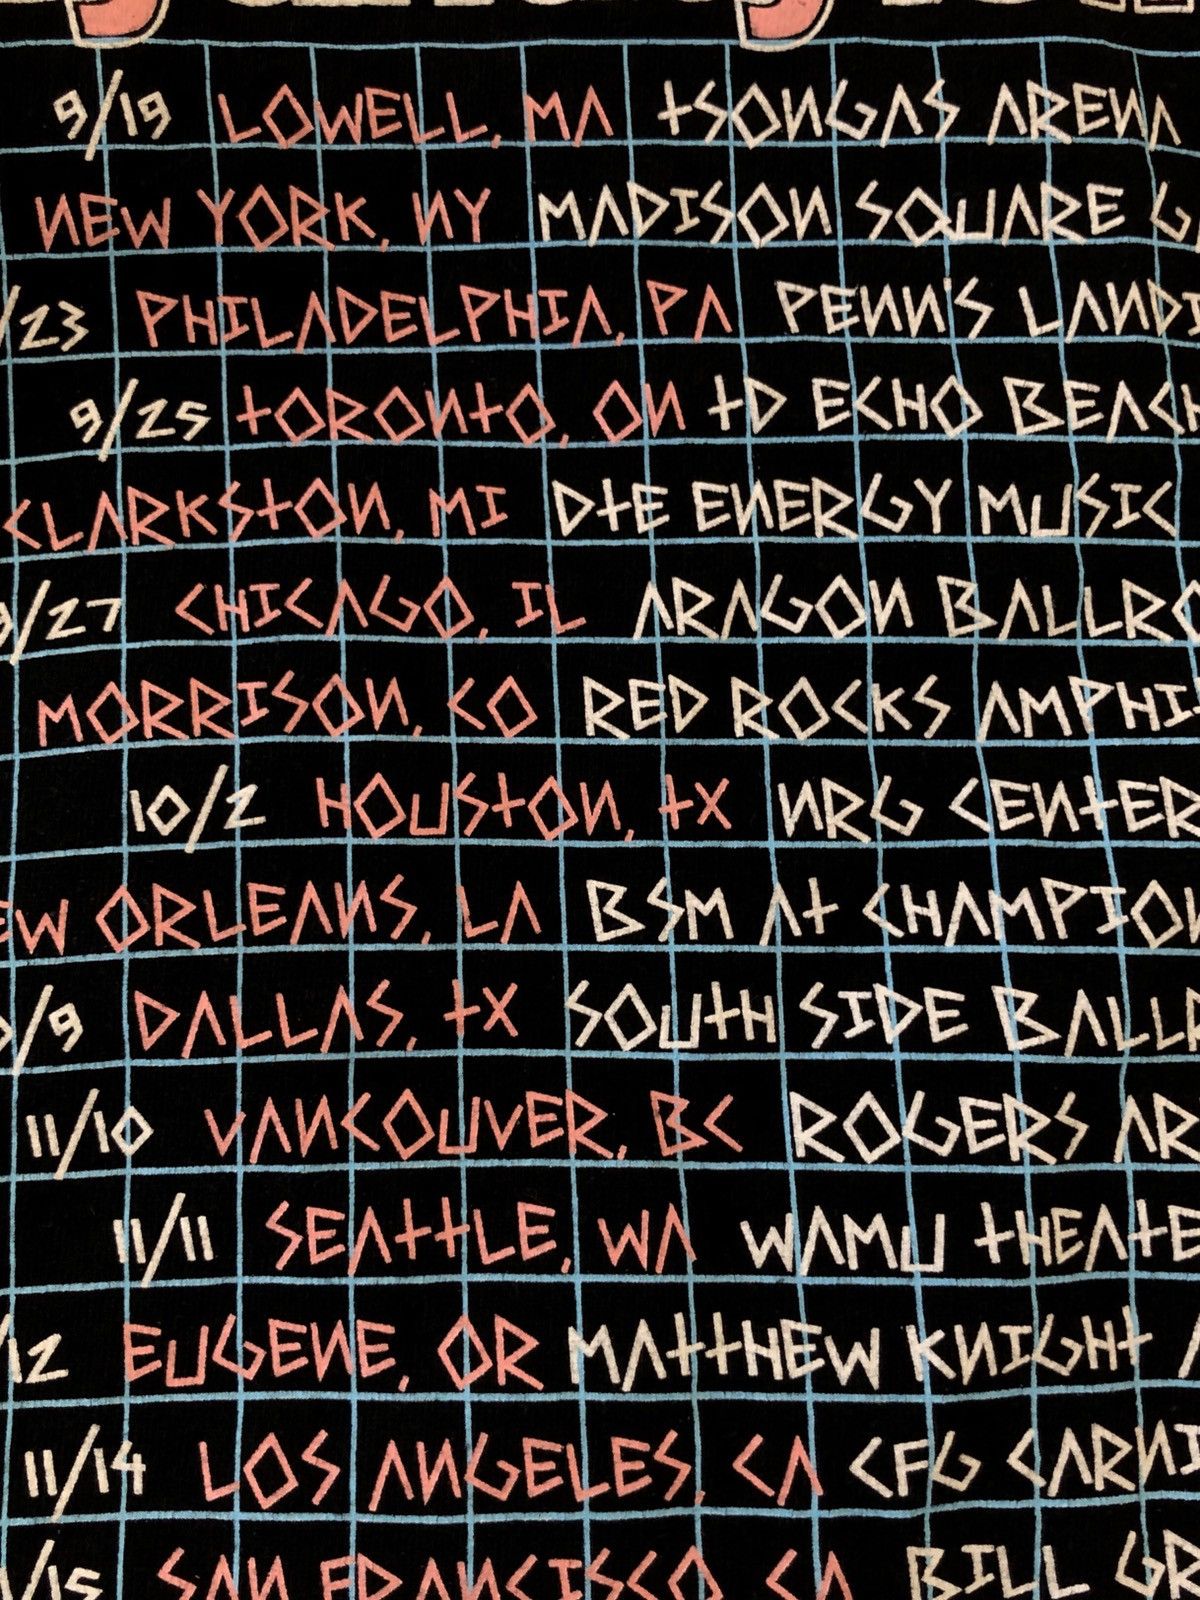 9/19 LOWELL, MA TSONGAS ARENA
NEW YORK, NY MADISON SQUARE G
/23 PHILADELPHIA, PA PENN'S LANDI
9/25 TORONTO, ON TD ECHO BEACH
CLARKSTON, MI DTE ENERGY MUSIC
9/27 CHICAGO, IL ARAGON BALLRO
MORRISON, CO RED ROCKS AMPHI
10/2 HOUSTON, TX NRG CENTER
EW ORLEANS, LA BSM AT CHAMPION
/9 DALLAS, TX SOUTH SIDE BALLR
11/10 VANCOUVER, BC ROGERS AR
11/11 SEATTLE, WA WAMU THEATE
/12 EUGENE, OR MATTHEW KNIGHT A
11/14 LOS ANGELES, CA CFG CARNI
/15 SAN FRANCISCO, CA BILL GR